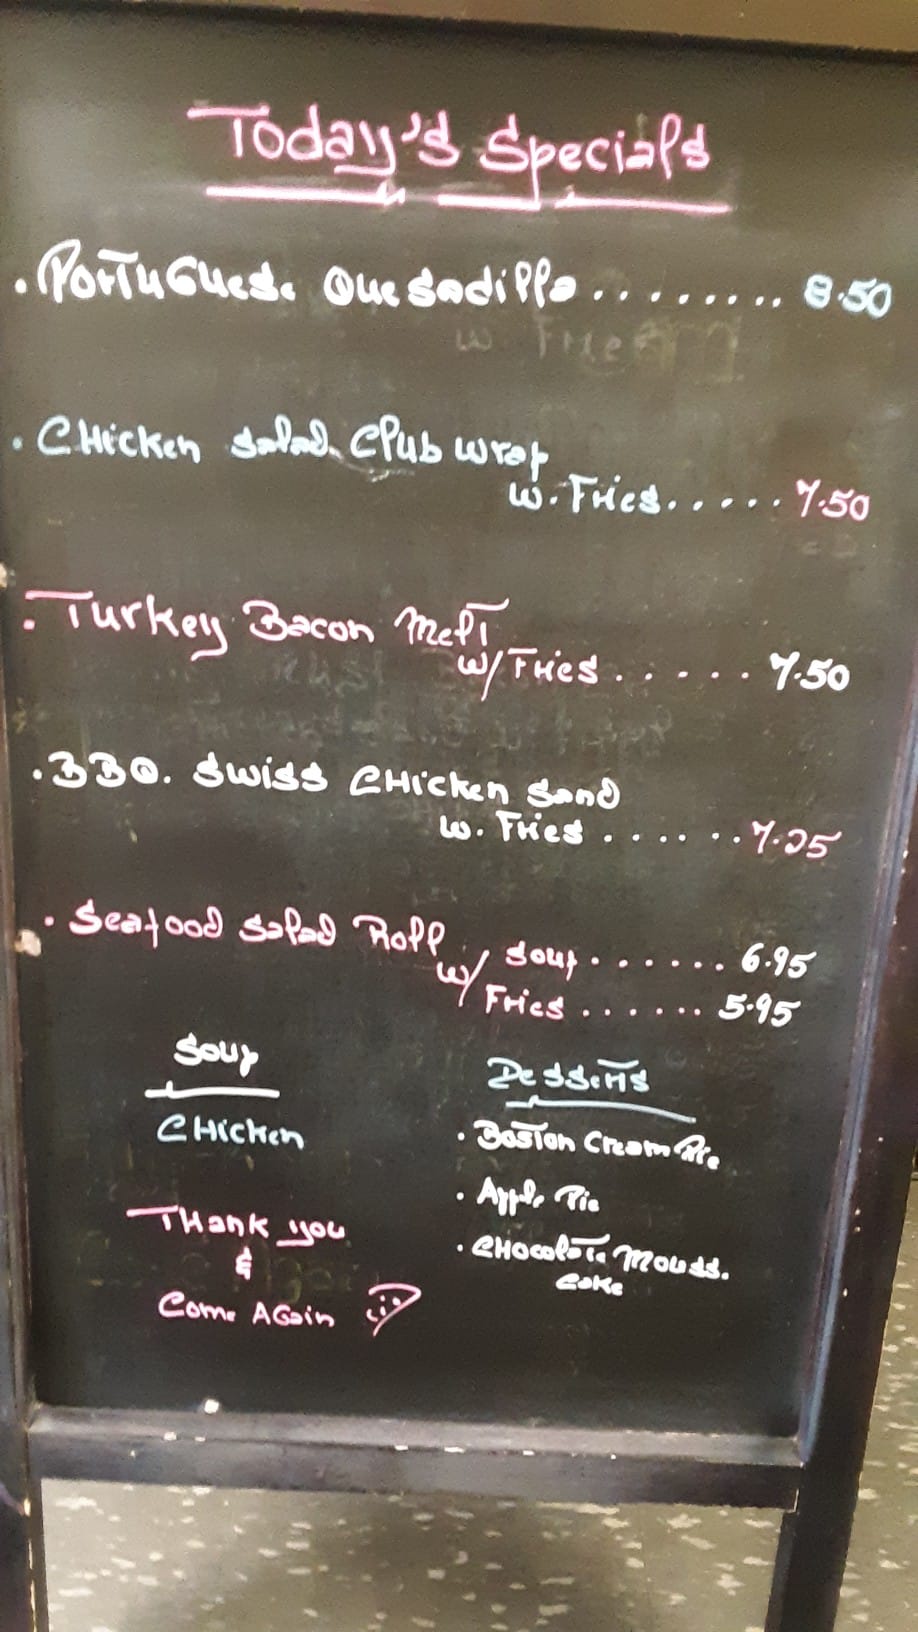 Today's Specials
. Portuguese Quesadilla ........ 8.50
. Chicken Salad Club Wrap
w. Fries ..... 7.50
. Turkey Bacon Melt
w/ Fries ...... 7.50
. BBQ. Swiss Chicken Sand
w. Fries ...... 7.25
. Seafood Salad Roll
w/ Soup ....... 6.95
Fries ...... 5.95
Soup
Chicken
Thank you
&
Come Again
Desserts
. Boston Cream Pie
. Apple Pie
. Chocolate Mouss.
Cake